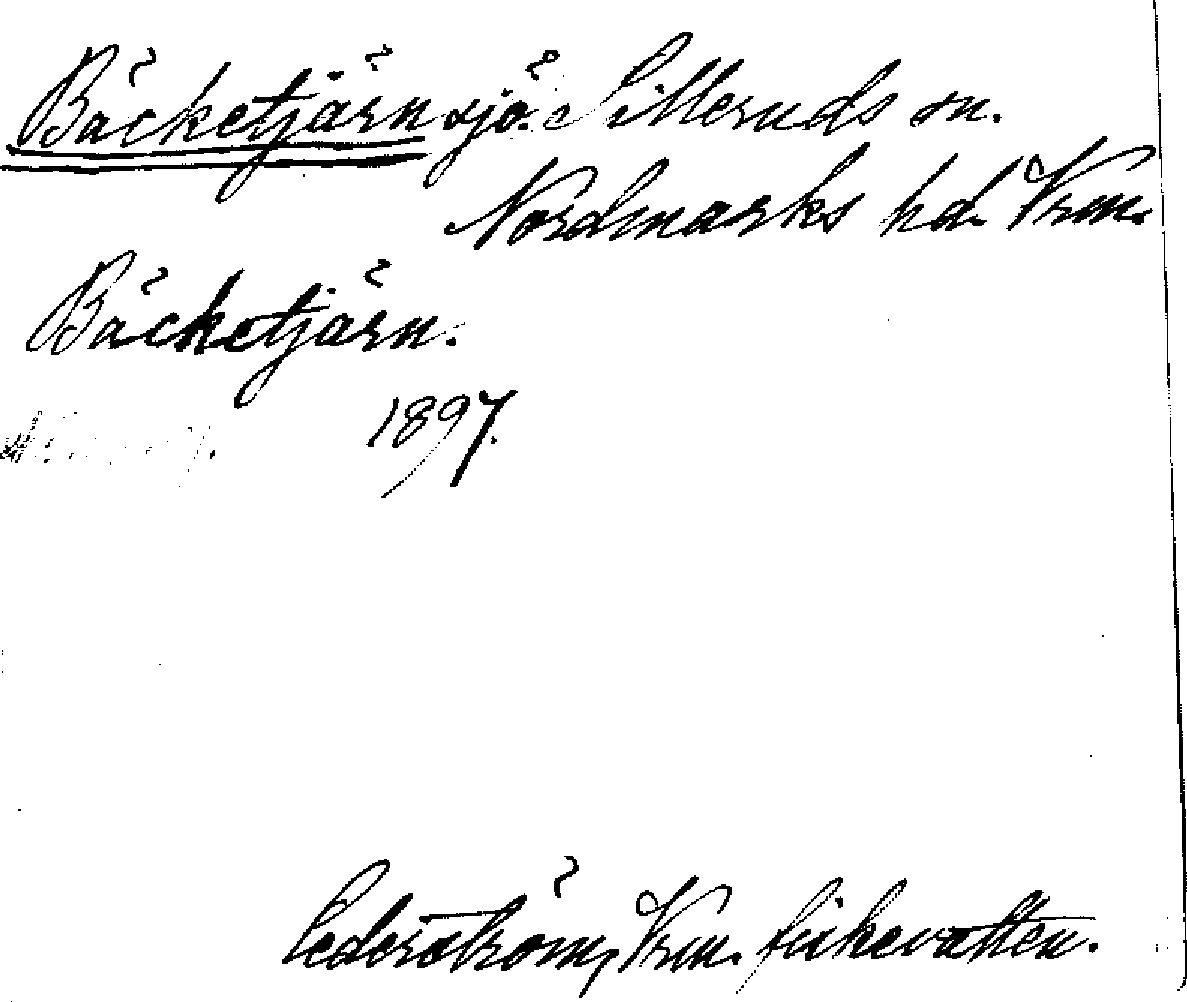 Bäcketjärn sjö. Silleruds sn.
Nordmarks hd. Vrm.
Bäcketjärn.
1897.
Cederström, Vrm. fiskevatten.